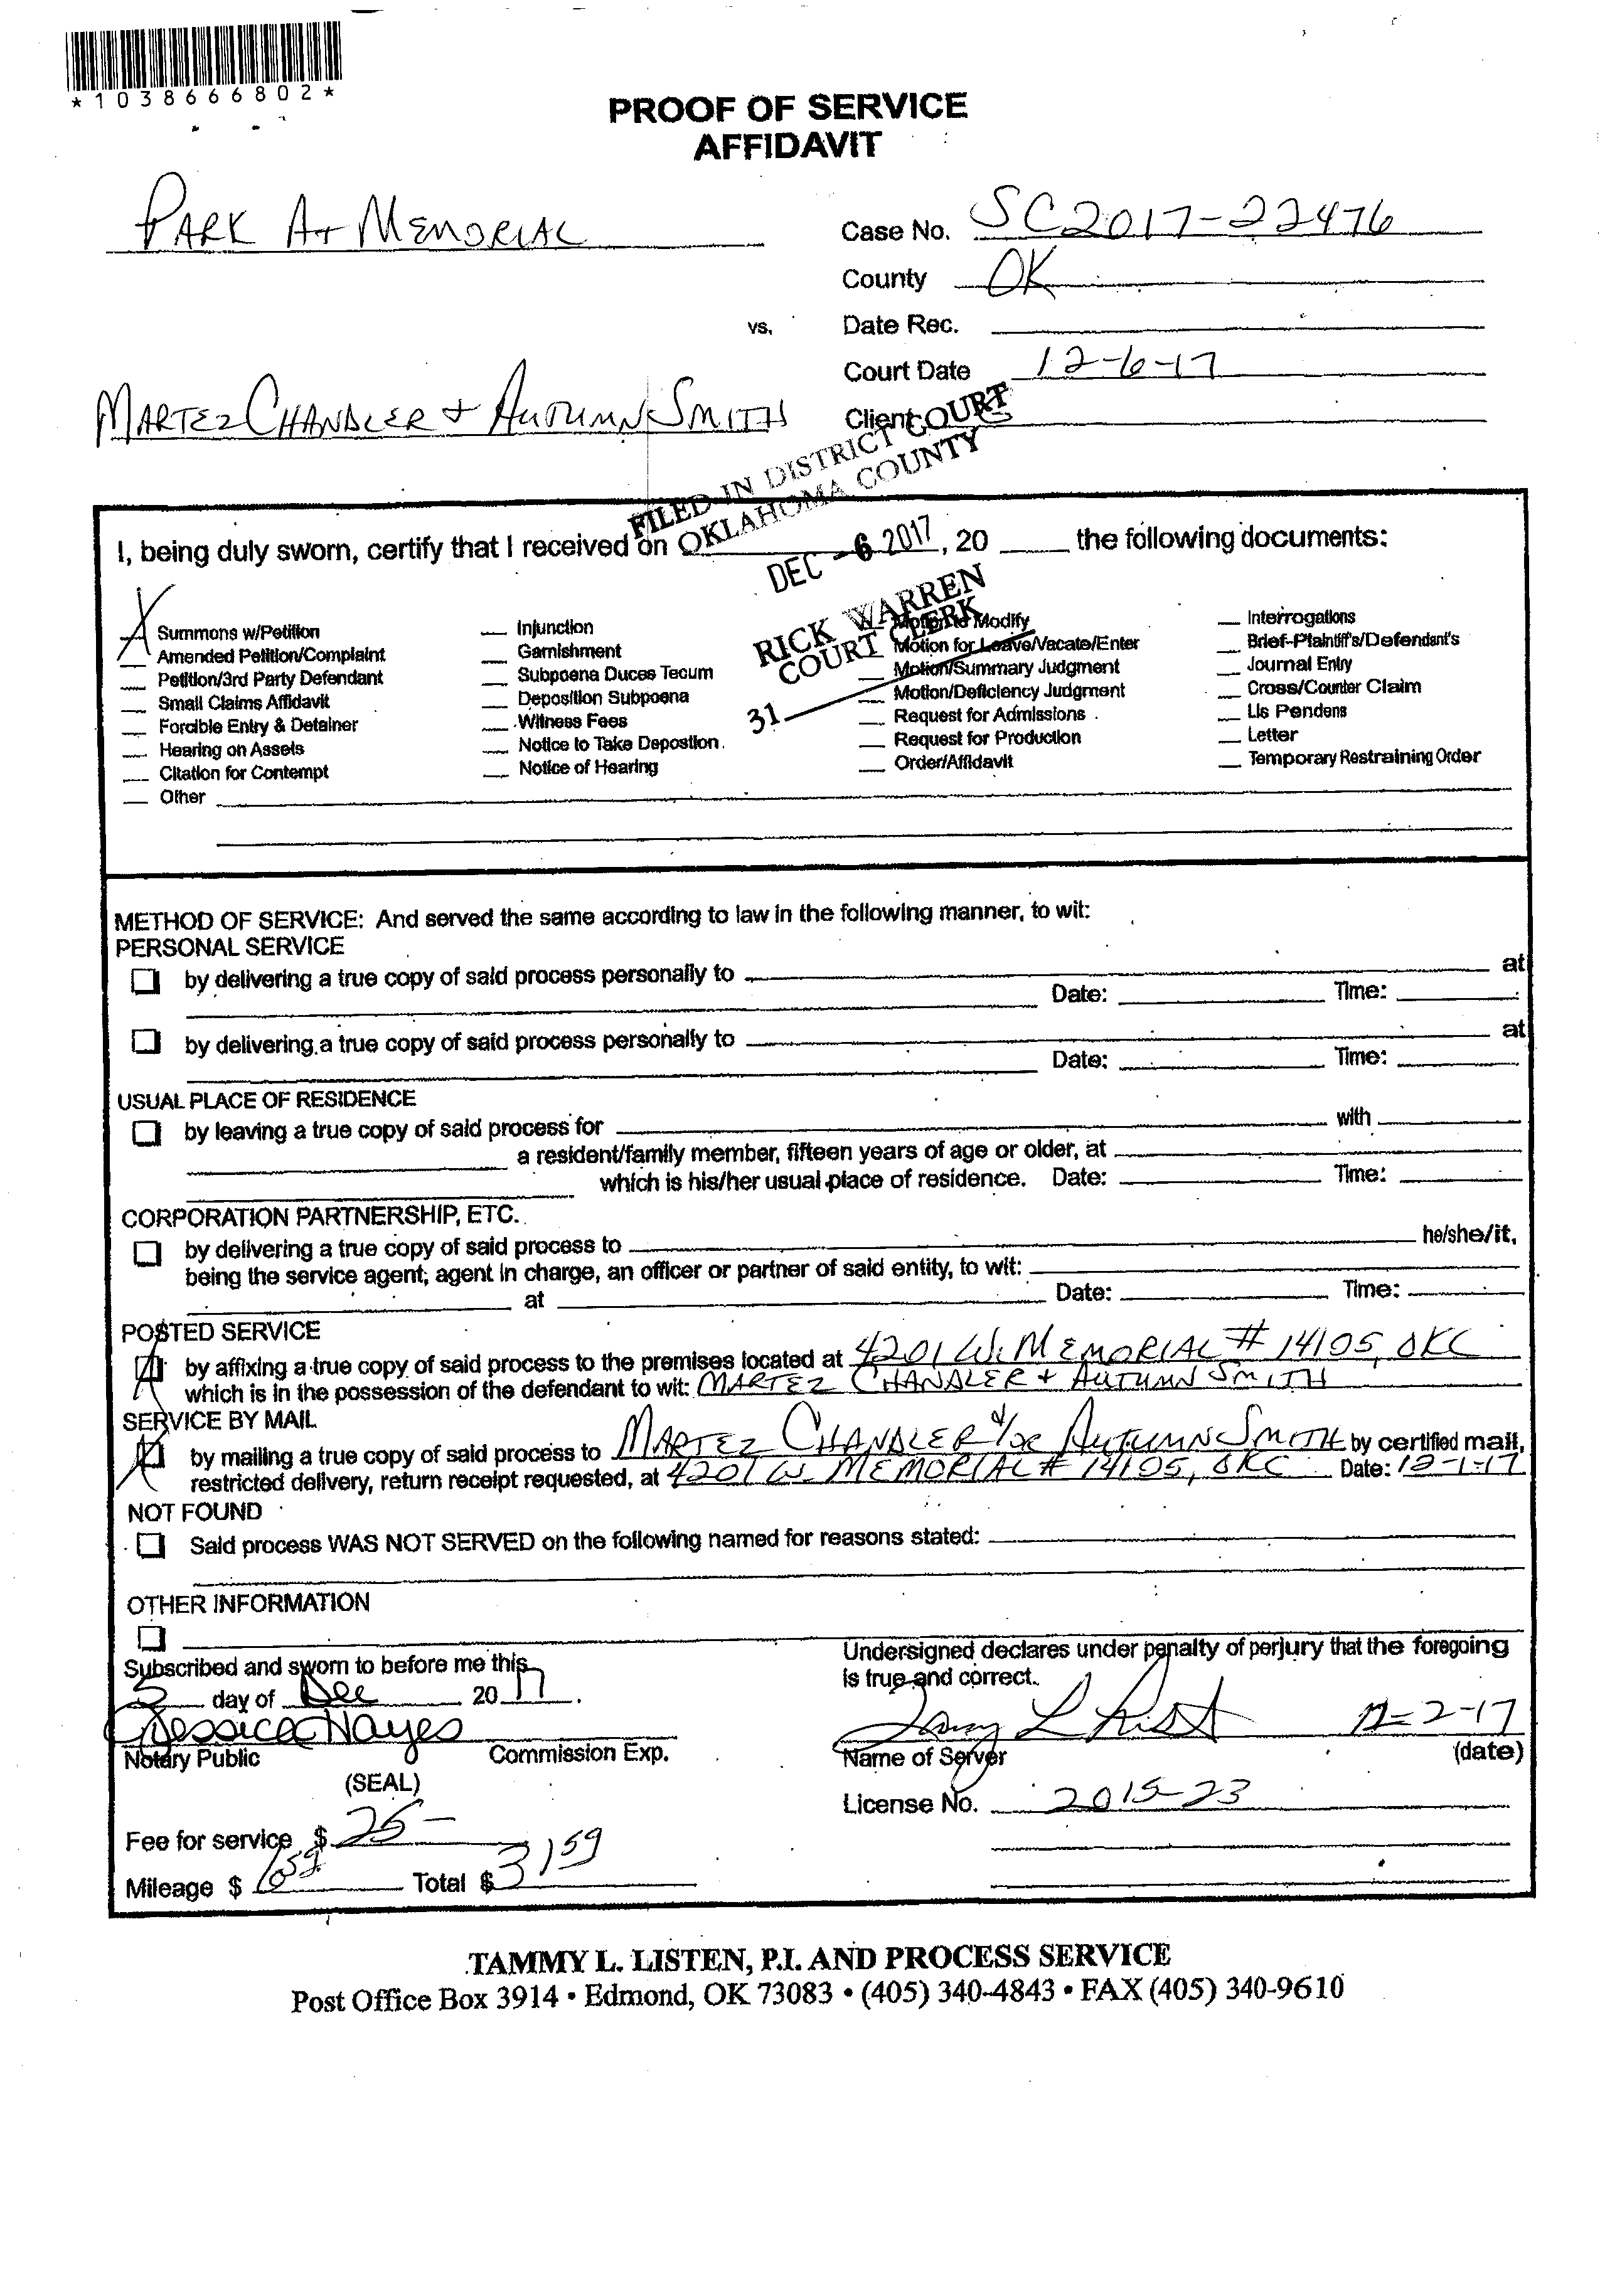 *1038666802*
PROOF OF SERVICE
AFFIDAVIT
PARK AT MEMORIAL
Case No. SC2017-22476
County OK
vs.
Date Rec.
Court Date 12-6-17
MARTEZ CHANDLER + AUTUMN SMITH
Client
FILED IN DISTRICT COURT
OKLAHOMA COUNTY
DEC -6 2017
RICK WARREN
COURT CLERK
31
I, being duly sworn, certify that I received on , 20 the following documents:
X Summons w/Petition
Amended Petition/Complaint
Petition/3rd Party Defendant
Small Claims Affidavit
Forcible Entry & Detainer
Hearing on Assets
Citation for Contempt
Other
Injunction
Garnishment
Subpoena Duces Tecum
Deposition Subpoena
Witness Fees
Notice to Take Depostion
Notice of Hearing
Motion to Modify
Motion for Leave/Vacate/Enter
Motion/Summary Judgment
Motion/Deficiency Judgment
Request for Admissions
Request for Production
Order/Affidavit
Interrogations
Brief-Plaintiff's/Defendant's
Journal Entry
Cross/Counter Claim
Lis Pendens
Letter
Temporary Restraining Order
METHOD OF SERVICE: And served the same according to law in the following manner, to wit:
PERSONAL SERVICE
by delivering a true copy of said process personally to at
Date: Time:
by delivering a true copy of said process personally to at
Date: Time:
USUAL PLACE OF RESIDENCE
by leaving a true copy of said process for with
a resident/family member, fifteen years of age or older, at
which is his/her usual place of residence. Date: Time:
CORPORATION PARTNERSHIP, ETC.
by delivering a true copy of said process to he/she/it,
being the service agent; agent in charge, an officer or partner of said entity, to wit:
at Date: Time:
POSTED SERVICE
X by affixing a true copy of said process to the premises located at 4201 W. MEMORIAL # 14105, OKC
which is in the possession of the defendant to wit: MARTEZ CHANDLER + AUTUMN SMITH
SERVICE BY MAIL
X by mailing a true copy of said process to MARTEZ CHANDLER &/OR AUTUMN SMITH by certified mail,
restricted delivery, return receipt requested, at 4201 W. MEMORIAL # 14105, OKC Date: 12-1-17
NOT FOUND
Said process WAS NOT SERVED on the following named for reasons stated:
OTHER INFORMATION
Subscribed and sworn to before me this
5 day of Dec 2017.
Jessica Hayes
Notary Public Commission Exp.
(SEAL)
Fee for service $ 25-
Mileage $ 6 59 Total $ 31 59
Undersigned declares under penalty of perjury that the foregoing
is true and correct.
12-2-17
Name of Server (date)
License No. 2015-23
TAMMY L. LISTEN, P.I. AND PROCESS SERVICE
Post Office Box 3914 • Edmond, OK 73083 • (405) 340-4843 • FAX (405) 340-9610